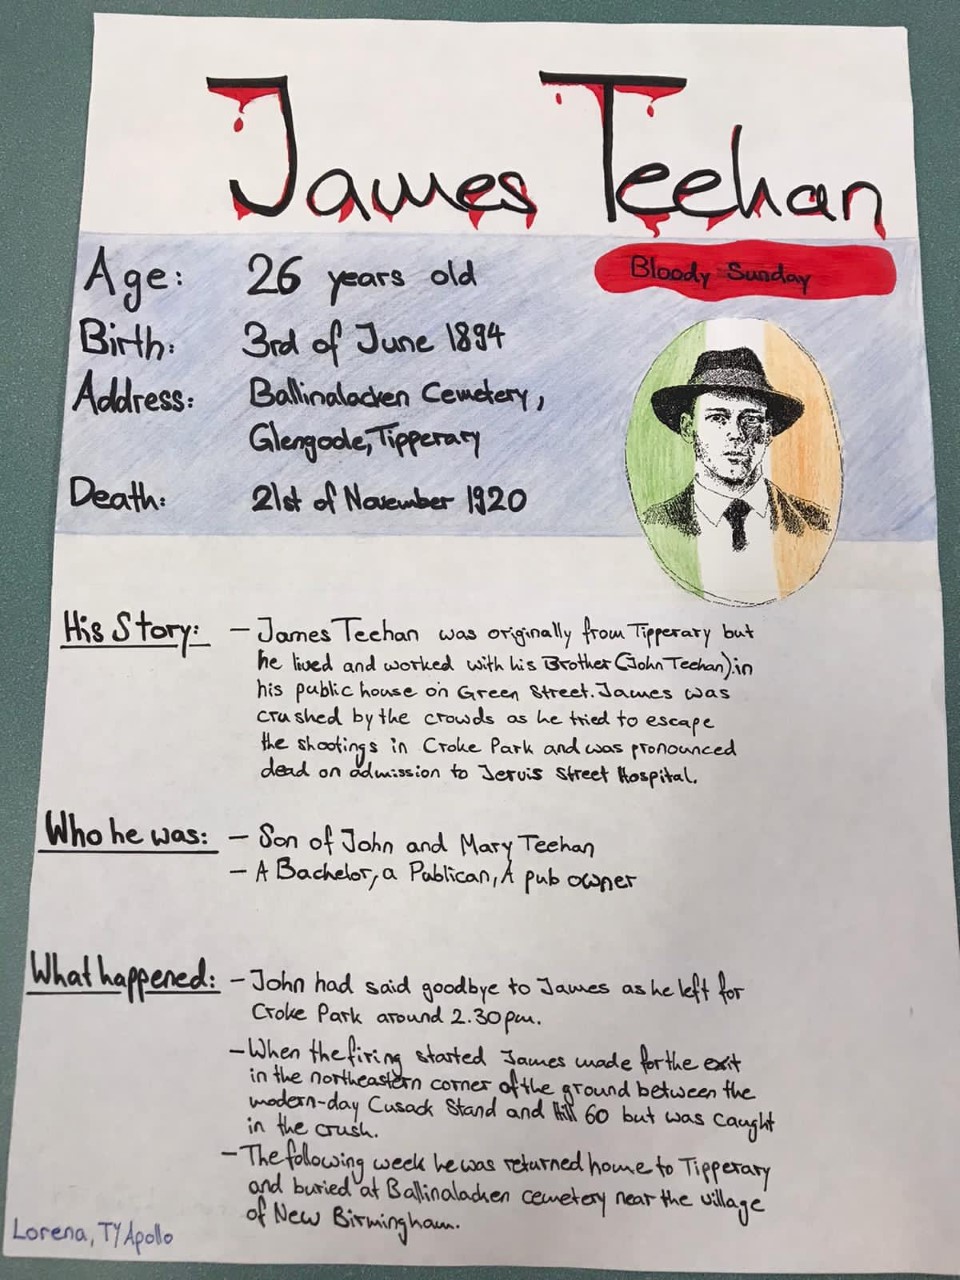 James Teehan
Age: 26 years old
Bloody Sunday
Birth: 3rd of June 1894
Address: Ballinalacken Cemetery,
Glengoole, Tipperary
Death: 21st of November 1920
His Story: - James Teehan was originally from Tipperary but
he lived and worked with his Brother (John Teehan).in
his public house on Green Street. James was
crushed by the crowds as he tried to escape
the shootings in Croke Park and was pronounced
dead on admission to Jervis Street Hospital.
Who he was: - Son of John and Mary Teehan
- A Bachelor, a Publican, A pub owner
What happened: - John had said goodbye to James as he left for
Croke Park around 2.30pm.
- When the firing started James made for the exit
in the northeastern corner of the ground between the
modern-day Cusack Stand and Hill 60 but was caught
in the crush.
- The following week he was returned home to Tipperary
and buried at Ballinalacken cemetery near the village
of New Birmingham.
Lorena, TY Apollo